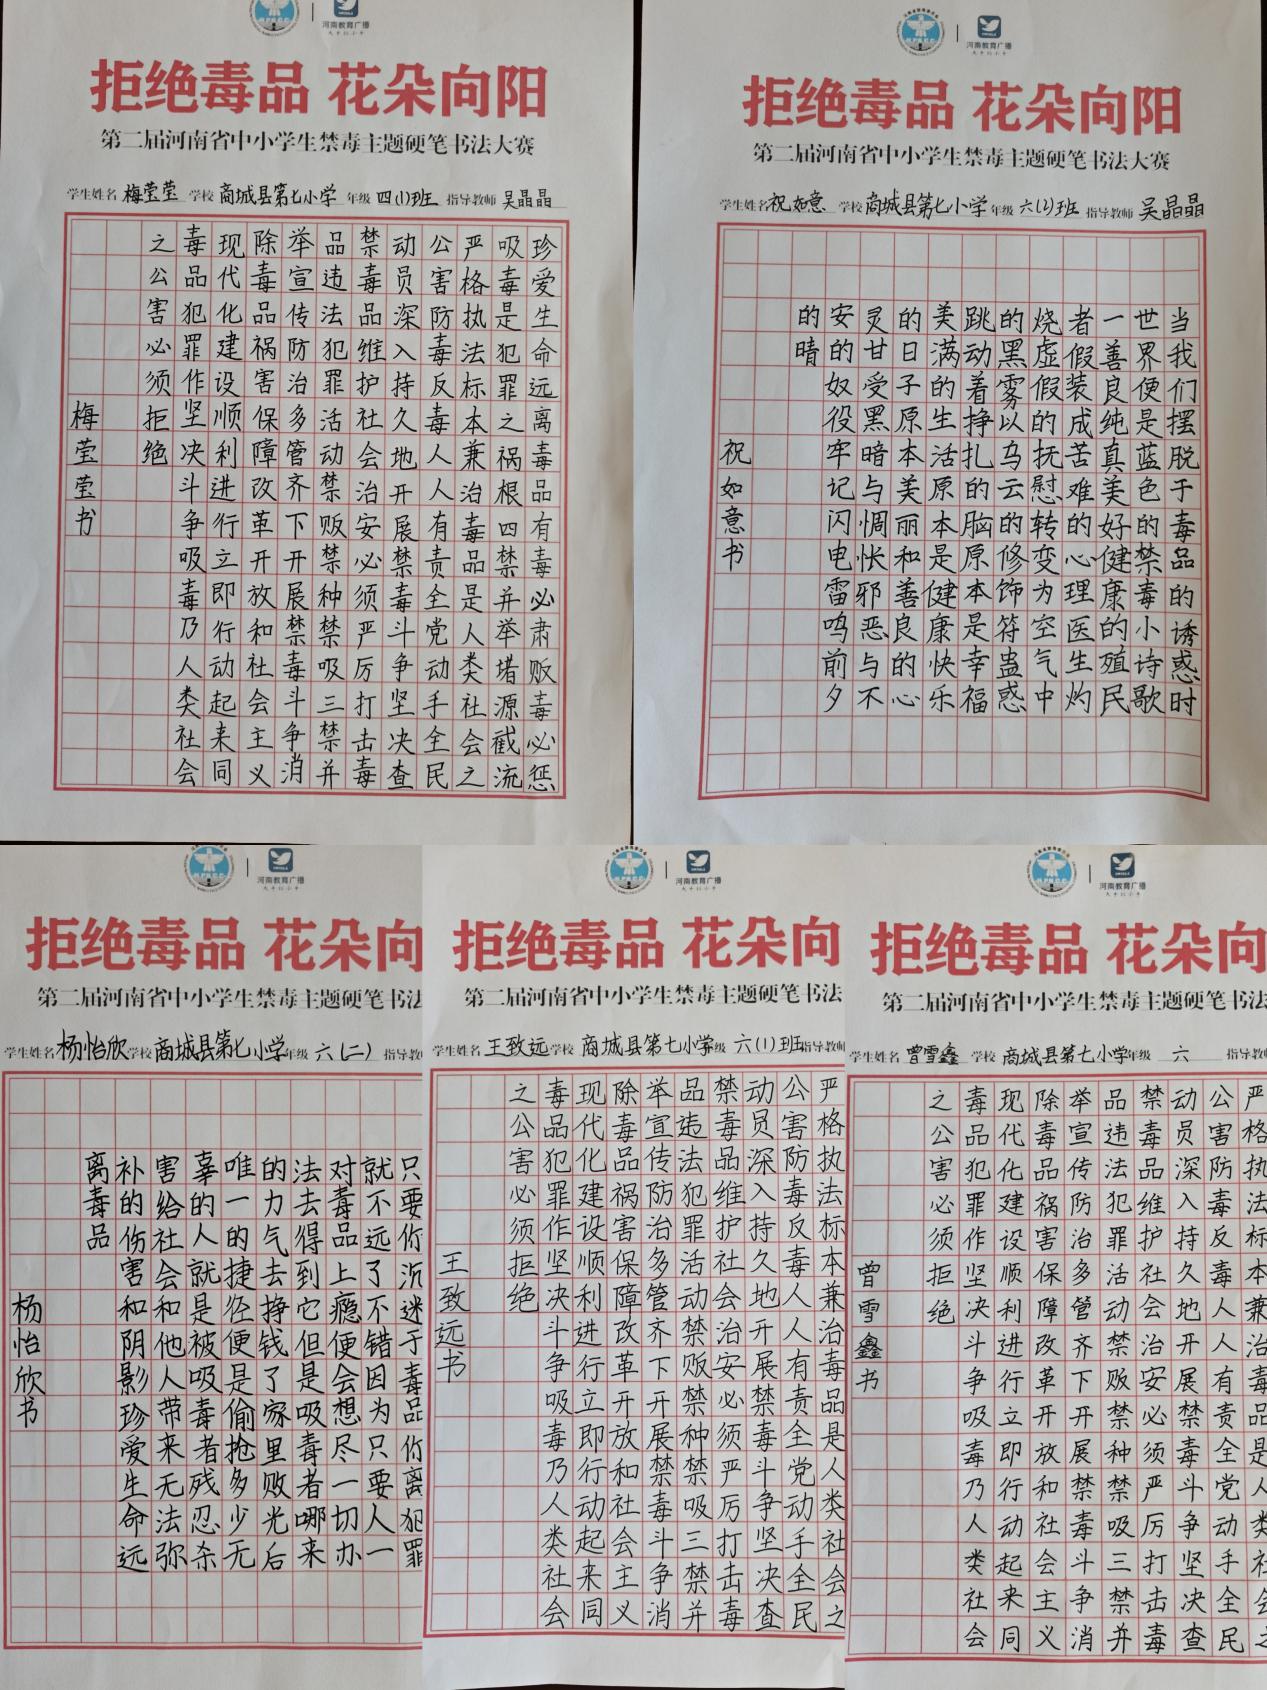 河南教育广播
拒绝毒品 花朵向阳
第二届河南省中小学生禁毒主题硬笔书法大赛
学生姓名 梅莹莹 学校 商城县第七小学 年级 四(1)班 指导教师 吴晶晶
珍爱生命远离毒品有毒必肃贩毒必惩
吸毒是犯罪之祸根四禁并举堵源截流
严格执法标本兼治毒品是人类社会之
公害防毒反毒人人有责全党动手全民
动员深入持久地开展禁毒斗争坚决查
禁毒品维护社会治安必须严厉打击毒
品违法犯罪活动禁贩禁种禁吸三禁并
举宣传防治多管齐下开展禁毒斗争消
除毒品祸害保障改革开放和社会主义
现代化建设顺利进行立即行动起来同
毒品犯罪作坚决斗争吸毒乃人类社会
之公害必须拒绝
梅莹莹书
河南教育广播
拒绝毒品 花朵向阳
第二届河南省中小学生禁毒主题硬笔书法大赛
学生姓名 祝如意 学校 商城县第七小学 年级 六(2)班 指导教师 吴晶晶
当我们摆脱于毒品的诱惑时
世界便是蓝色的禁毒小诗歌
一善良纯真美好健康的殖民
者假装成苦难的心理医生灼
烧虚假的抚慰转变为空气中
的黑雾以乌云的修饰符蛊惑
跳动着挣扎的脑原本是幸福
美满的生活原本是健康快乐
的日子原本美丽和善良的心
灵甘受黑暗与惆怅邪恶与不
安的奴役牢记闪电雷鸣前夕
的晴
祝如意书
河南教育广播
拒绝毒品 花朵向
第二届河南省中小学生禁毒主题硬笔书法
学生姓名 杨怡欣 学校 商城县第七小学 年级 六(二) 指导教师
只要你沉迷于毒品你离犯罪
就不远了不错因为只要人一
对毒品上瘾便会想尽一切办
法去得到它但是吸毒者哪来
的力气去挣钱了家里败光后
唯一的捷径便是偷抢多少无
辜的人就是被吸毒者残忍杀
害给社会和他人带来无法弥
补的伤害和阴影珍爱生命远
离毒品
杨怡欣书
河南教育广播
拒绝毒品 花朵向
第二届河南省中小学生禁毒主题硬笔书法
学生姓名 王致远 学校 商城县第七小学 年级 六(1)班 指导教
严格执法标本兼治毒品是人类社会之
公害防毒反毒人人有责全党动手全民
动员深入持久地开展禁毒斗争坚决查
禁毒品维护社会治安必须严厉打击毒
品违法犯罪活动禁贩禁种禁吸三禁并
举宣传防治多管齐下开展禁毒斗争消
除毒品祸害保障改革开放和社会主义
现代化建设顺利进行立即行动起来同
毒品犯罪作坚决斗争吸毒乃人类社会
之公害必须拒绝
王致远书
河南教育广播
拒绝毒品 花朵向
第二届河南省中小学生禁毒主题硬笔书法
学生姓名 曾雪鑫 学校 商城县第七小学 年级 六 指导教
严格执法标本兼治毒品是人类社会之
公害防毒反毒人人有责全党动手全民
动员深入持久地开展禁毒斗争坚决查
禁毒品维护社会治安必须严厉打击毒
品违法犯罪活动禁贩禁种禁吸三禁并
举宣传防治多管齐下开展禁毒斗争消
除毒品祸害保障改革开放和社会主义
现代化建设顺利进行立即行动起来同
毒品犯罪作坚决斗争吸毒乃人类社会
之公害必须拒绝
曾雪鑫书